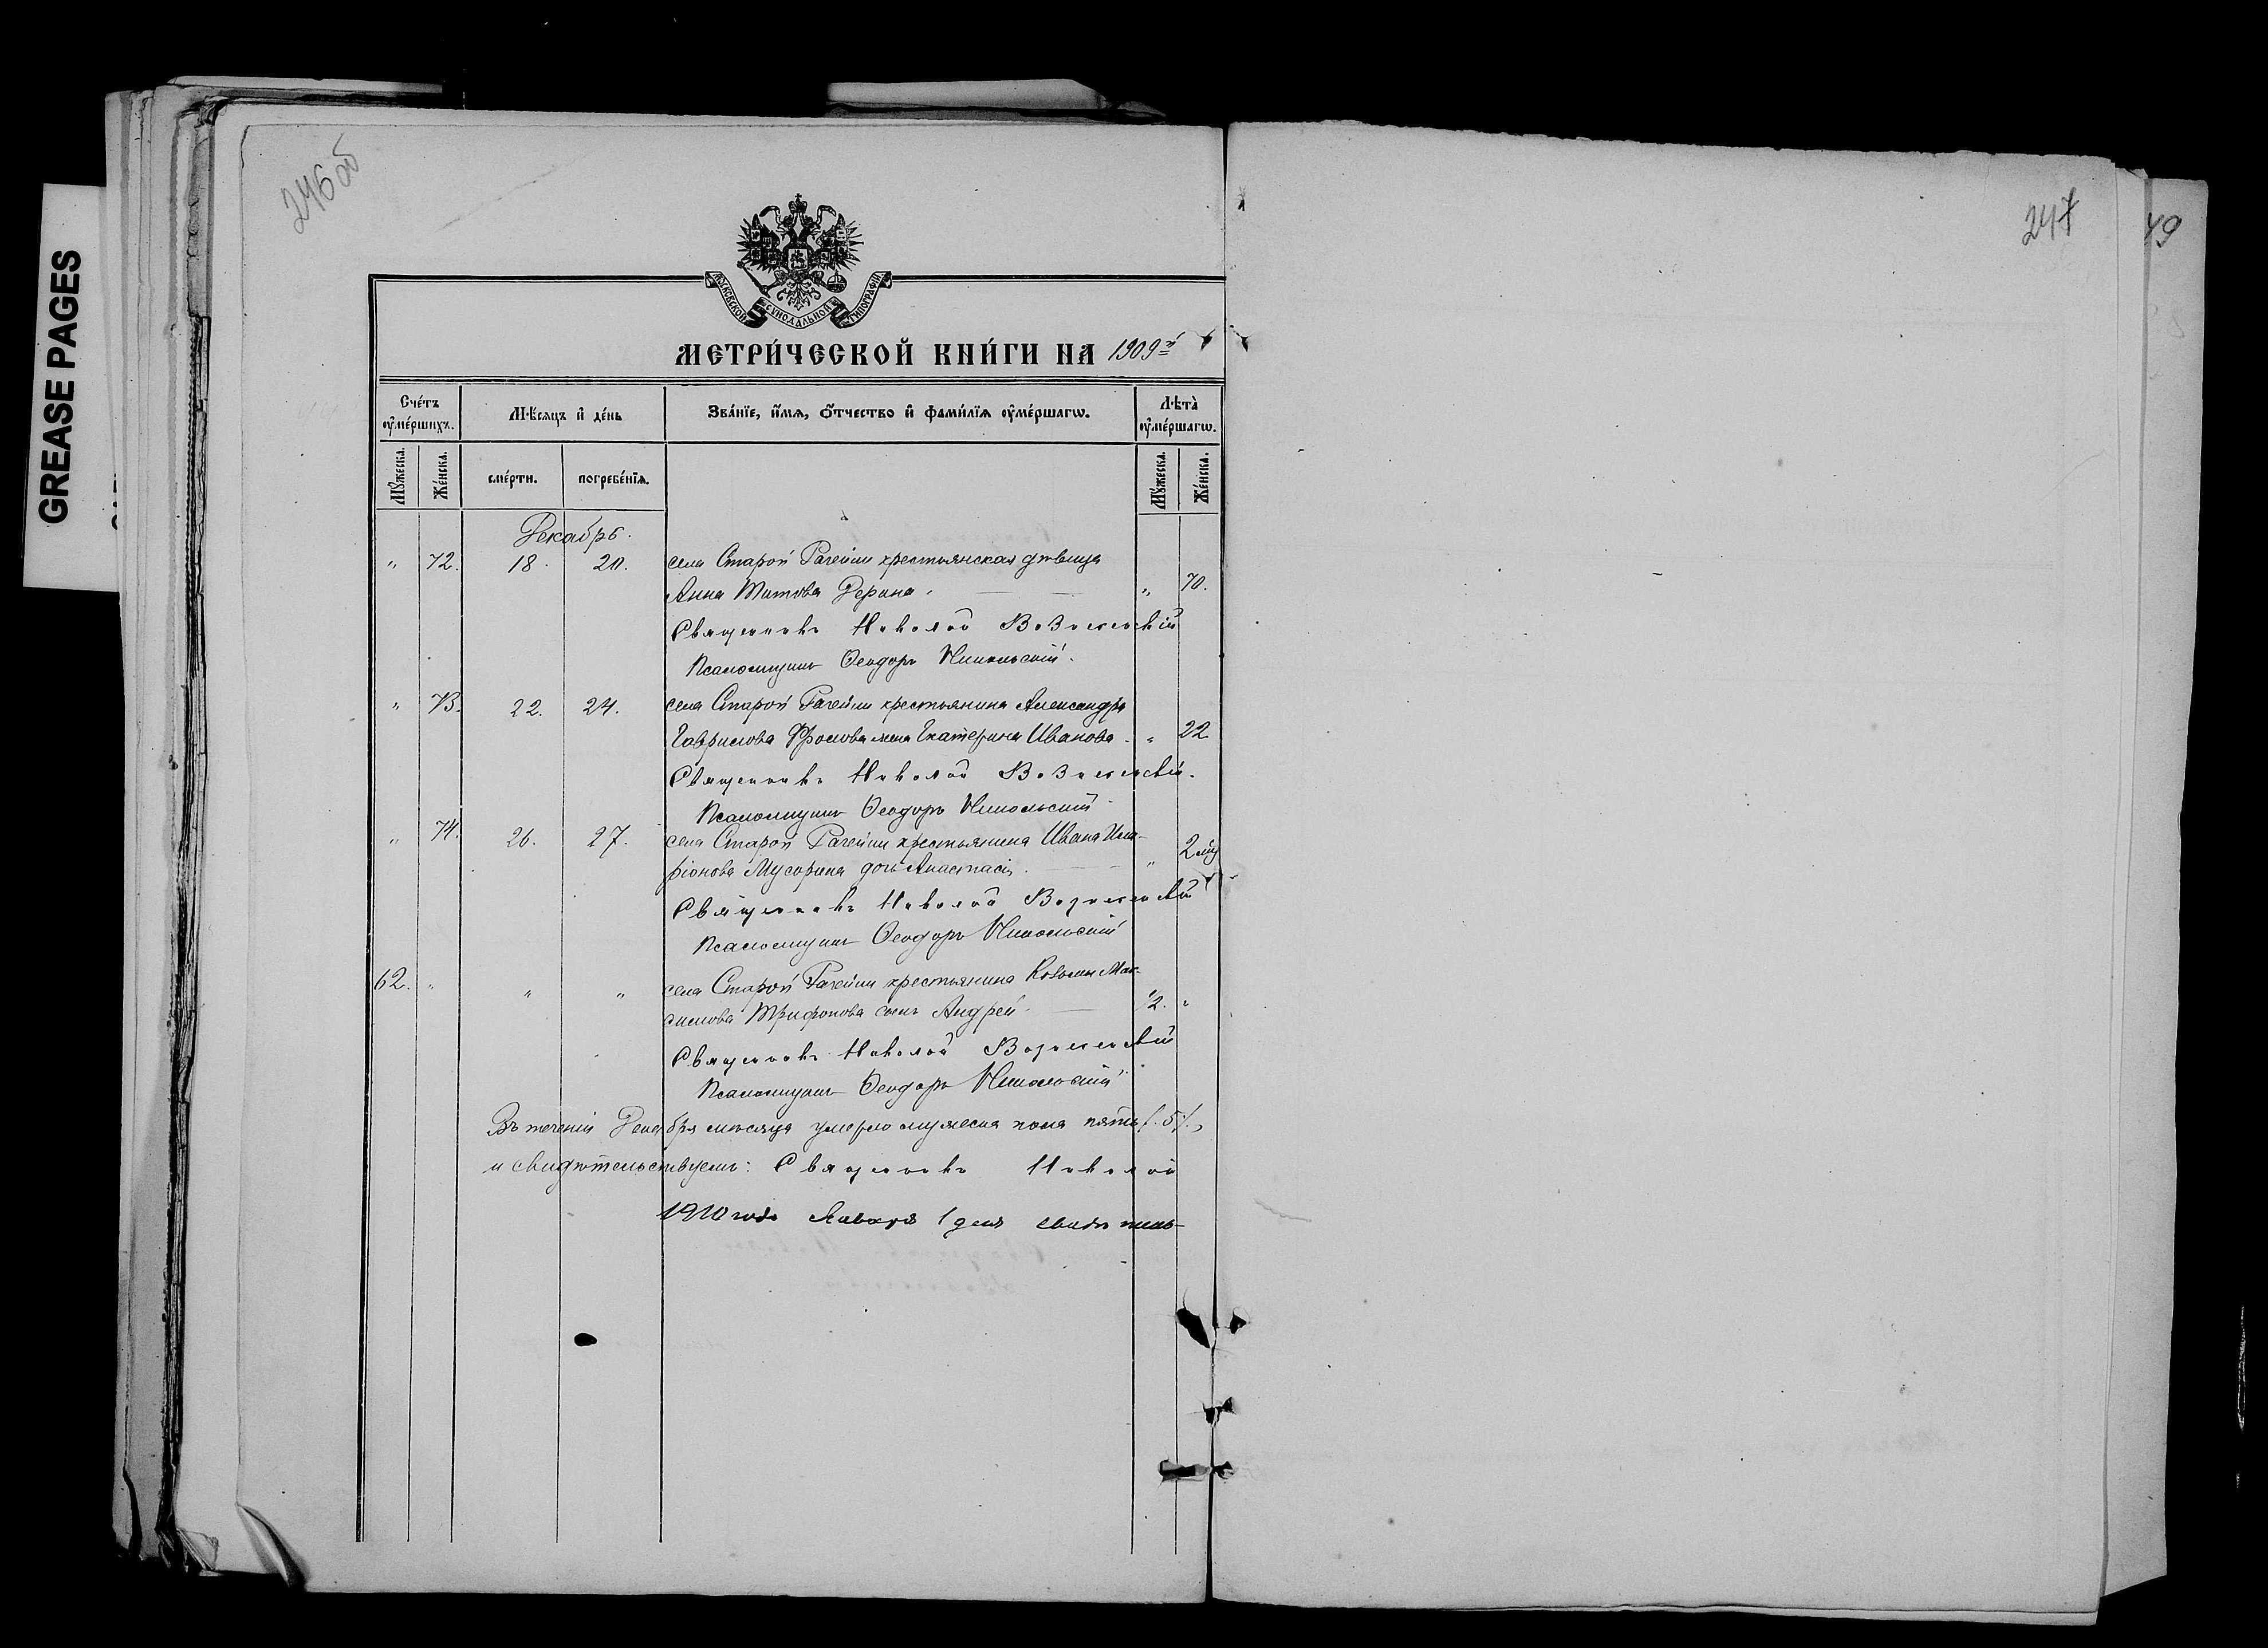 GREASE PAGES
246 об
247
49
МОСКОВСКОЙ СѴНОДАЛЬНОЙ ТИПОГРАФІИ
МЕТРИ́ЧЕСКОЙ КНИ́ГИ НА 1909 й
Сче́тъ ᲂу҆ме́ршихъ.
Мѣ́сяцъ и҆ де́нь
Зва́нїе, и҆́мѧ, ѻ҆́тчество и҆ фами́лїѧ ᲂу҆ме́ршагѡ.
Лѣ́та ᲂу҆ме́ршагѡ.
Мꙋ́жеска.
Же́нска.
сме́рти.
погребе́нїѧ.
Мꙋ́жеска.
Же́нска.
Декабрь.
" 72. 18. 20. села Старой Рачейки крестьянская дѣвица
Анна Титова Дерина. " 70.
Священникъ Николай Вознесенскій
Псаломщикъ Ѳеодоръ Никольскій.
" 73. 22. 24. села Старой Рачейки крестьянина Александра
Гаврилова Фролова жена Екатерина Иванова " 22
Священникъ Николай Вознесенскій.
Псаломщикъ Ѳеодоръ Никольскій
" 74. 26. 27. села Старой Рачейки крестьянина Ивана Ила-
ріонова Мусорина дочь Анастасія. " 2
Священникъ Николай Вознесенскій
Псаломщикъ Ѳеодоръ Никольскій
62. " " " села Старой Рачейки крестьянина Козьмы Мак-
симова Трифонова сынъ Андрей. "
Священникъ Николай Вознесенскій
Псаломщикъ Ѳеодоръ Никольскій
Въ теченіи Декабря мѣсяца умерло мужеска пола пять (5),
и свидѣтельствуемъ: Священникъ Николай
1910 года Января 1 дня свидѣтель-